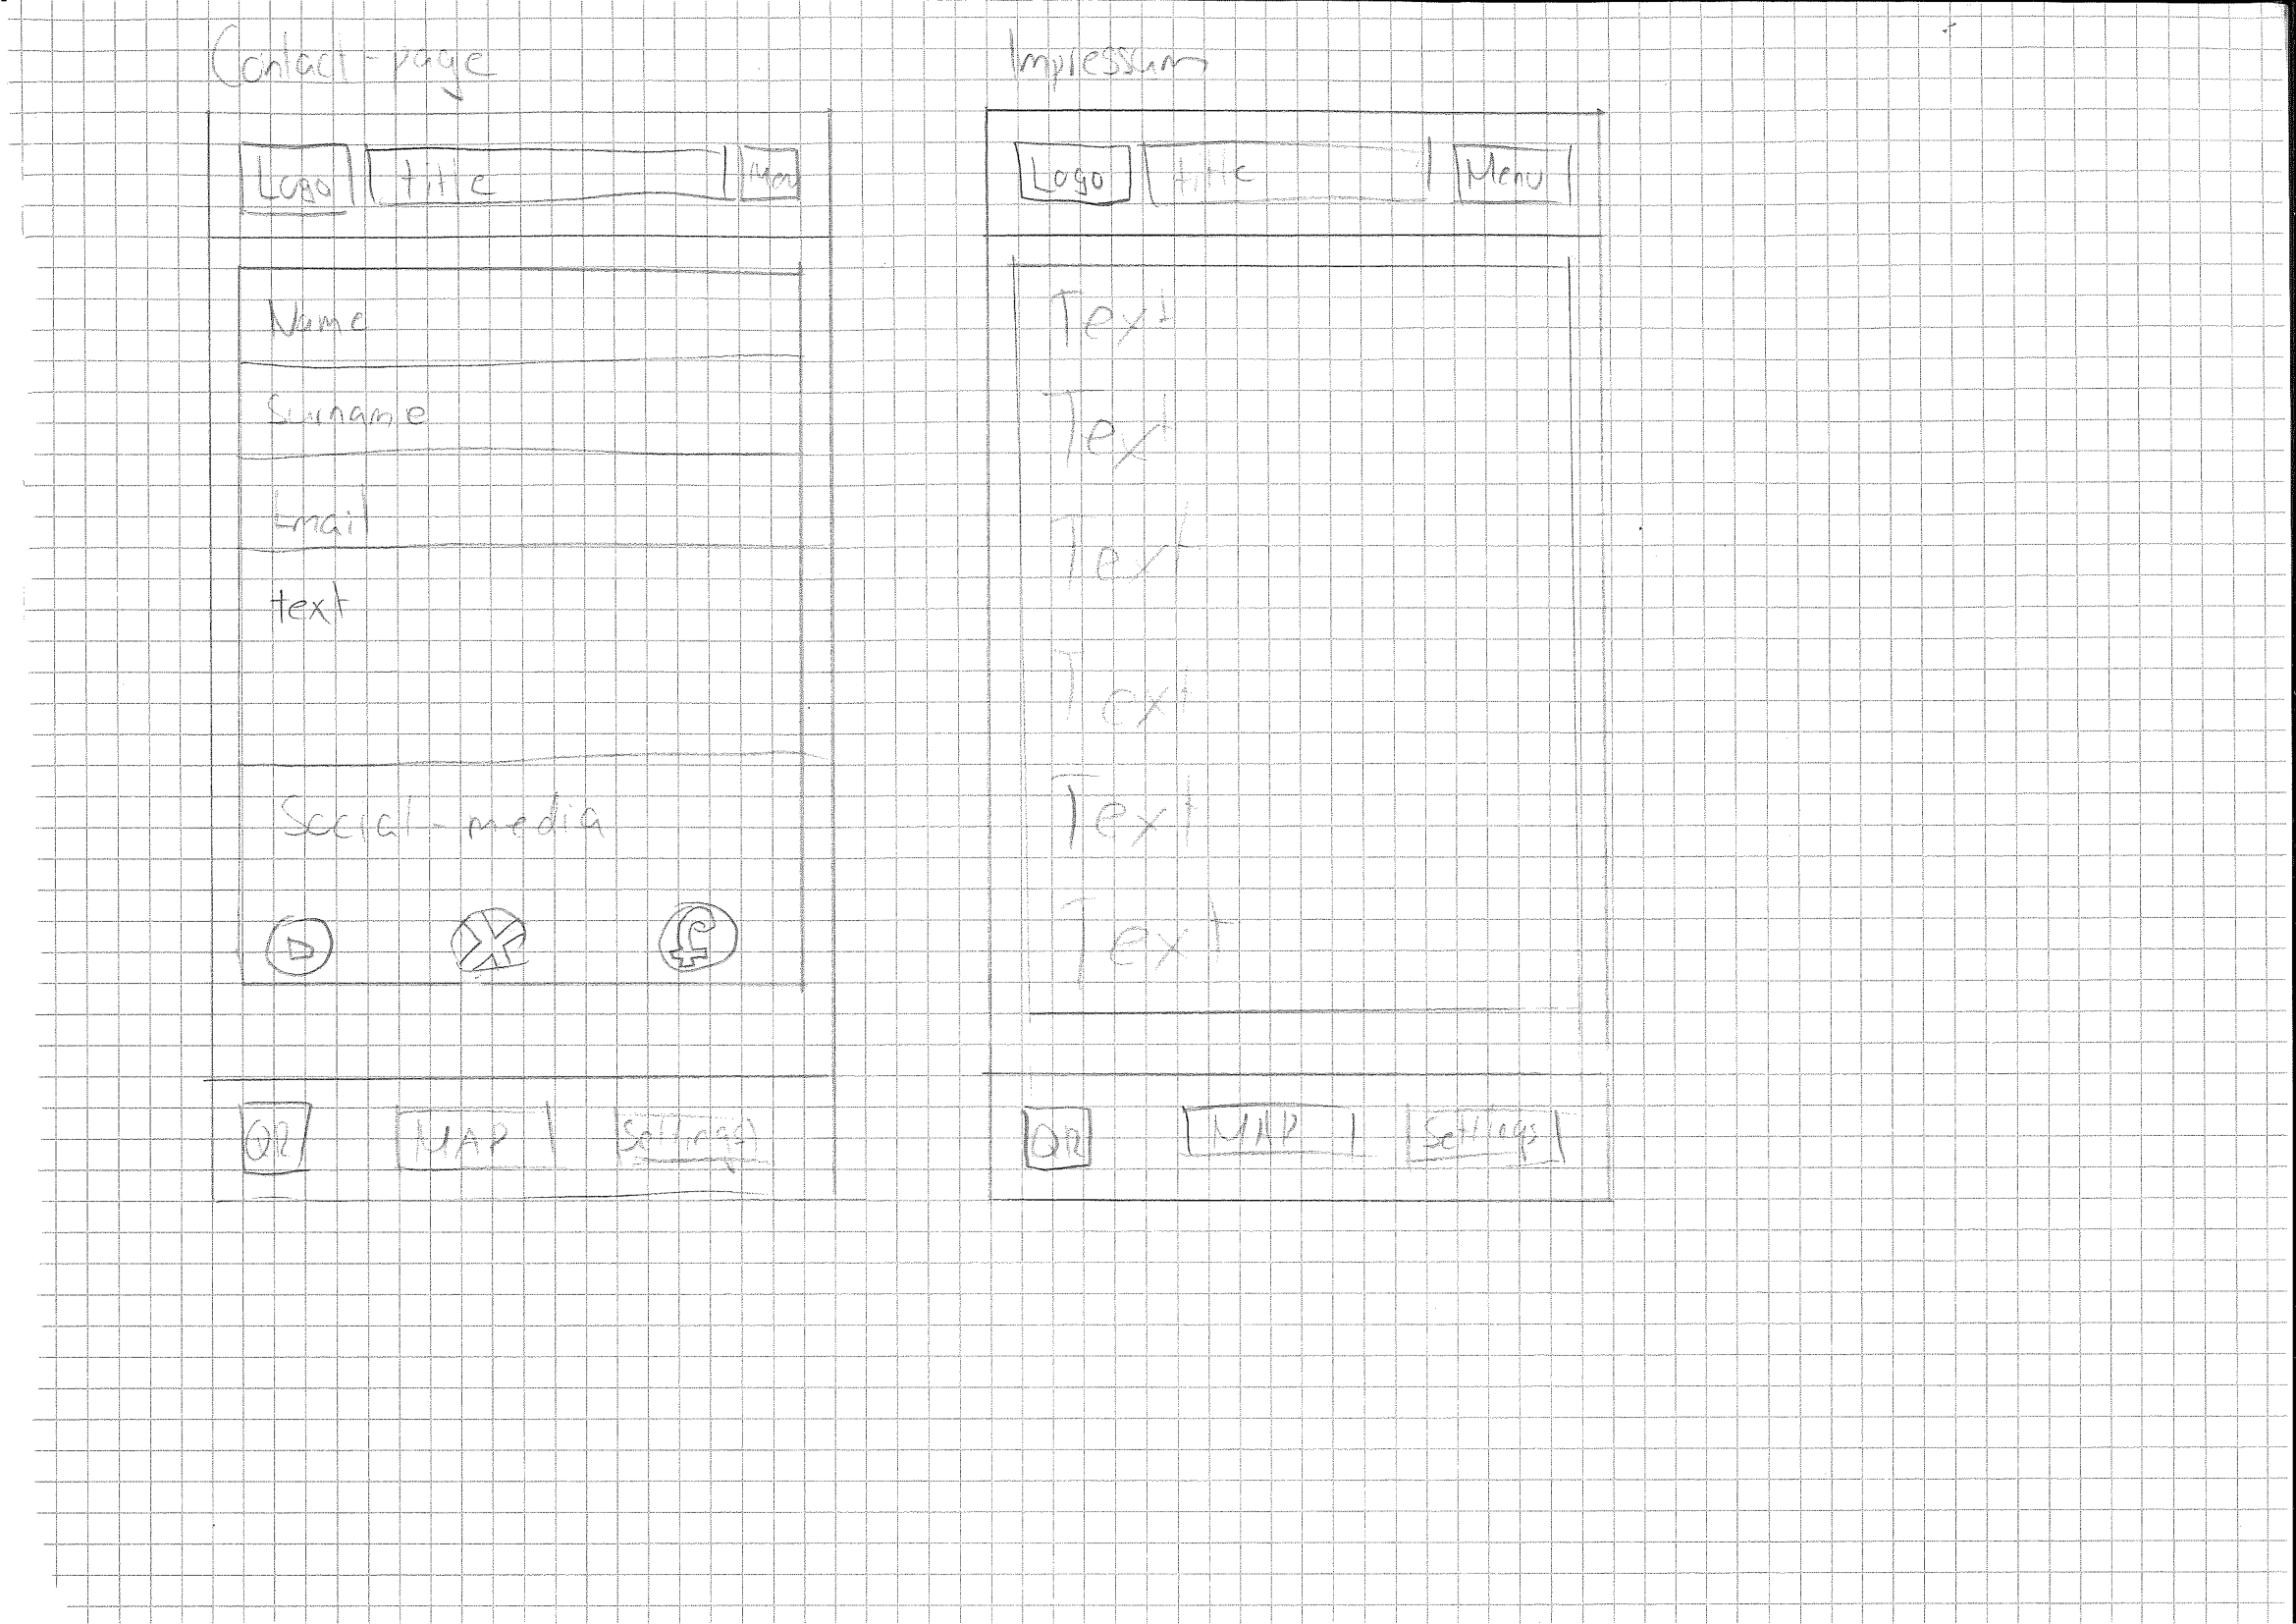 Contact-page
Logo title Menu
Name
Surname
Email
text
Social-media
QR MAP Settings
Impressum
Logo title Menu
Text
Text
Text
Text
Text
Text
QR MAP Settings